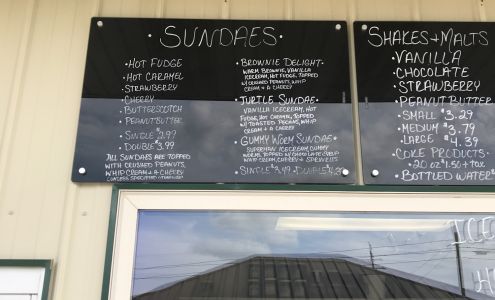 SUNDAES
HOT FUDGE
HOT CARAMEL
STRAWBERRY
CHERRY
BUTTERSCOTCH
PEANUTBUTTER
SINGLE $2.99
DOUBLE $3.99
ALL SUNDAES ARE TOPPED
WITH CRUSHED PEANUTS,
WHIP CREAM + A CHERRY
UNLESS SPECIFIED OTHERWISE
BROWNIE DELIGHT
WARM BROWNIE, VANILLA
ICECREAM, HOT FUDGE, TOPPED
W/ CRUSHED PEANUTS, WHIP
CREAM + A CHERRY
TURTLE SUNDAE
VANILLA ICECREAM, HOT
FUDGE, HOT CARAMEL, TOPPED
W/ TOASTED PECANS, WHIP
CREAM + A CHERRY
GUMMY WORM SUNDAE
SUPERMAN ICECREAM, GUMMY
WORMS, TOPPED W/ CHOCOLATE SYRUP
WHIP CREAM, CHERRY + SPRINKLES
SINGLE $3.49 DOUBLE
SHAKES + MALTS
VANILLA
CHOCOLATE
STRAWBERRY
PEANUT BUTTER
SMALL $3.29
MEDIUM $3.79
LARGE $4.39
COKE PRODUCTS
20 OZ $1.50 + TAX
BOTTLED WATER
ICE